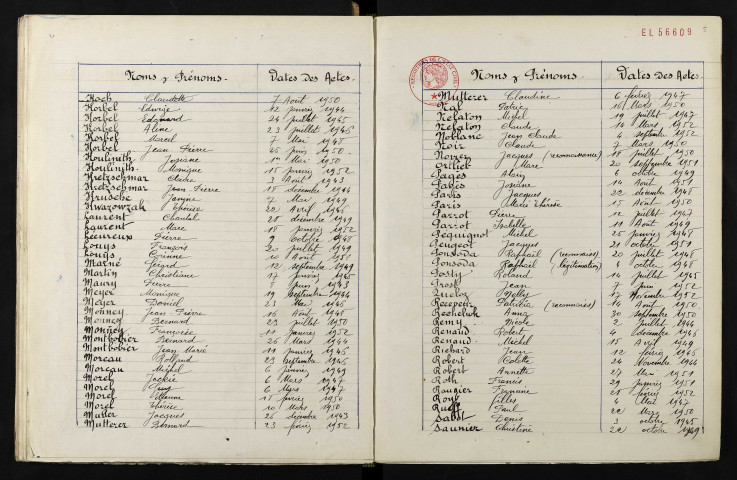 Noms & Prénoms. Dates Des Actes.
Koch Claudette 7 Août 1950
Korbel Edwige 22 janvier 1944
Korbel Edouard 24 juillet 1945
Korbel Aline 23 juillet 1946
Korbel Marcel 7 Mai 1948
Korbel Jean Pierre 1950
Koulinith Josiane 1er Mai 1950
Koulinith Monique 15 janvier 1952
Kretzschmar Claire 3 Août 1943
Kretzschmar Jean Pierre 18 décembre 1946
Krusche 7 Mai 1949
22 Avril 1946
Laurent Chantal 28 décembre 1949
Laurent Marc 18 janvier 1952
Lecureux Pierre 9 Octobre 1945
Louys François 20 juillet 1949
Louys Corinne 10 Août 1951
Marné Gérard 12 septembre 1949
Martin Christiane 17 janvier 1945
Maury Pierre 8 juin 1943
Meyer Monique 19 septembre 1944
Meyer Daniel 23 Mai 1946
Monney Jean Pierre 16 Août 1948
Monney Bernard 29 juillet 1950
Monney Françoise 11 janvier 1952
Montbobier Bernard 26 Mars 1944
Montbobier Jean Marie 11 janvier 1946
Moreau Rolland 23 septembre 1945
Moreau Michel 6 janvier 1949
Morel Jackie 6 Mars 1947
Morel Guy 6 Mars 1947
Morel 15 février 1950
Morel Thérèse 10 Mars 1950
Mutter Jacques 26 décembre 1943
Mutterer Bernard 23 février 1952
EL 56609
Noms & Prénoms. Dates Des Actes.
Mutterer Claudine 6 février 1947
Nat Patrice 16 Mars 1950
Nélaton Michel 19 juillet 1947
Nélaton Claude 14 Mars 1952
Noblanc Jean Claude 4 septembre 1952
Noir Claude 7 Mars 1950
Jacques (reconnaissance) 18 juillet 1950
Ortlieb Marc 20 septembre 1951
Pagès Alain 6 octobre 1949
Pagès Josiane 14 Août 1951
Paris Jacques 22 décembre 1948
Paris Marie Thérèse 15 Août 1950
Parrot Pierre 12 juillet 1947
Parrot Isabelle 11 Août 1949
Pequignot Michel 25 janvier 1948
Peugeot Jacques 21 octobre 1951
Ponsoda Raphaël (reconnaiss) 20 juillet 1948
Ponsoda Raphaël (légitimation) 6 octobre 1948
Posty Roland 14 juillet 1945
Prost Jean 7 juin 1952
Nelly 17 Novembre 1952
Récepeur Patricia (reconnaiss) 16 Août 1950
Anna 30 septembre 1950
Remy Nicole 2 juillet 1944
Renaud Robert 4 décembre 1946
Renaud Michel 15 Avril 1949
Richard Jean 12 février 1945
Robert Colette 24 Novembre 1944
Robert Annette 27 Mai 1951
Roth Francis 29 janvier 1951
Rougier 25 février 1952
Roux Gilles 6 Mai 1947
Paul 22 Mars 1950
Sabot Denis 3 octobre 1945
Saunier Christine 22 octobre 1949